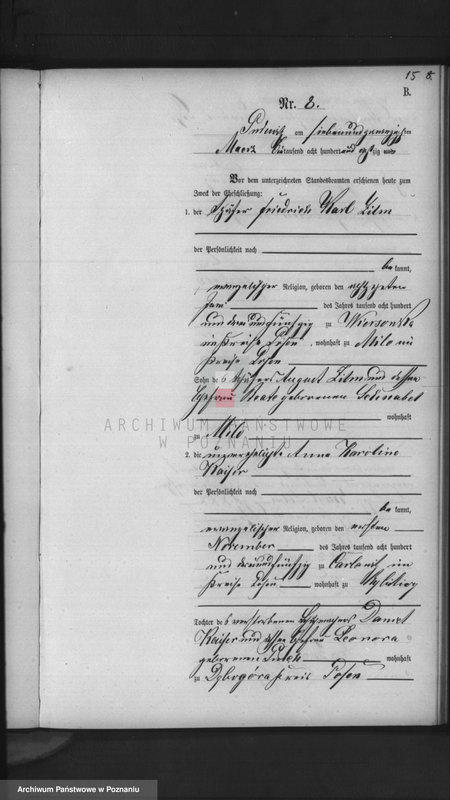 15 8.
B.
Nr. 2.
Pudewitz am siebenundzwanzigsten
Maerz tausend acht hundert und achtzig
Vor dem unterzeichneten Standesbeamten erschienen heute zum
Zweck der Eheschließung:
1. der Schäfer Friedrich Karl Zilm
der Persönlichkeit nach
be kannt,
evangelischer Religion, geboren den achtzehnten
Juni des Jahres tausend acht hundert
und dreiundfünfzig zu Wiersonka
im Kreise Posen, wohnhaft zu Milo im
Kreise Posen
Sohn des Schäfers August Zilm und dessen
Ehefrau Beate geborenen
wohnhaft
zu Milo
2. die unverehelichte Anna Karoline
Kaiser
der Persönlichkeit nach
be kannt,
evangelischer Religion, geboren den ersten
November des Jahres tausend acht hundert
und dreiundfünfzig zu im
Kreise Posen wohnhaft zu
Tochter des verstorbenen Daniel
Kaiser und dessen Ehefrau Leonora
geborenen wohnhaft
zu Dzbogóra Kreis Posen
ARCHIWUM PAŃSTWOWE
W POZNANIU
Archiwum Państwowe w Poznaniu